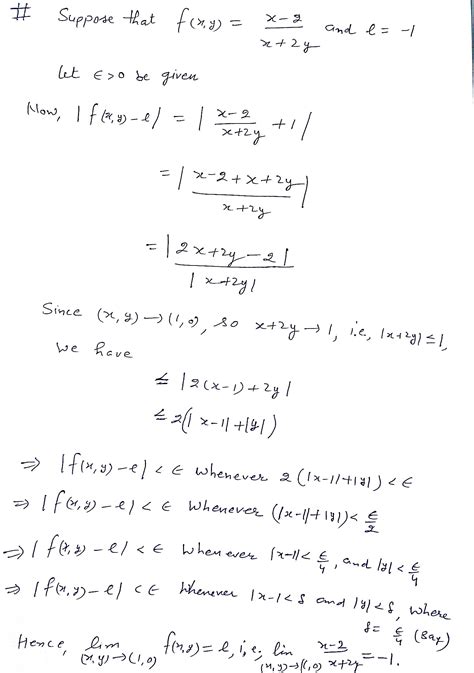 # Suppose that f(x,y) = (x-2)/(x+2y) and l = -1
Let ε>0 be given
Now, |f(x,y)-l| = |(x-2)/(x+2y) + 1|
= |(x-2+x+2y)/(x+2y)|
= |2x+2y-2|/|x+2y|
Since (x,y)→(1,0), so x+2y→1, i.e, |x+2y|≤1,
we have
≤ |2(x-1)+2y|
≤ 2(|x-1|+|y|)
⇒ |f(x,y)-l|<ε whenever 2(|x-1|+|y|)<ε
⇒ |f(x,y)-l|<ε whenever (|x-1|+|y|)<ε/2
⇒ |f(x,y)-l|<ε whenever |x-1|<ε/4, and |y|<ε/4
⇒ |f(x,y)-l|<ε whenever |x-1<δ and |y|<δ, where
δ= ε/4 (say)
Hence, lim (x,y)→(1,0) f(x,y)=l, i,e; lim (x,y)→(1,0) (x-2)/(x+2y) = -1.